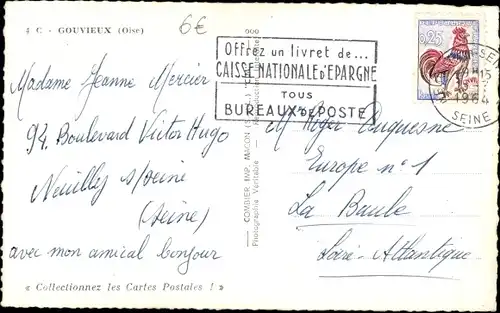 4 C - GOUVIEUX (Oise)
6€
Madame Jeanne Mercier
94 Boulevard Victor Hugo
Neuilly s/Seine
(Seine)
avec mon amical bonjour
« Collectionnez les Cartes Postales ! »
COMBIER IMP. MACON
Photographie Véritable
Offrez un livret de...
CAISSE NATIONALE D'EPARGNE
TOUS
BUREAUX DE POSTE
0,25
1964
SEINE
Mr Roger Duquesne
Europe n° 1
La Baule
Loire-Atlantique